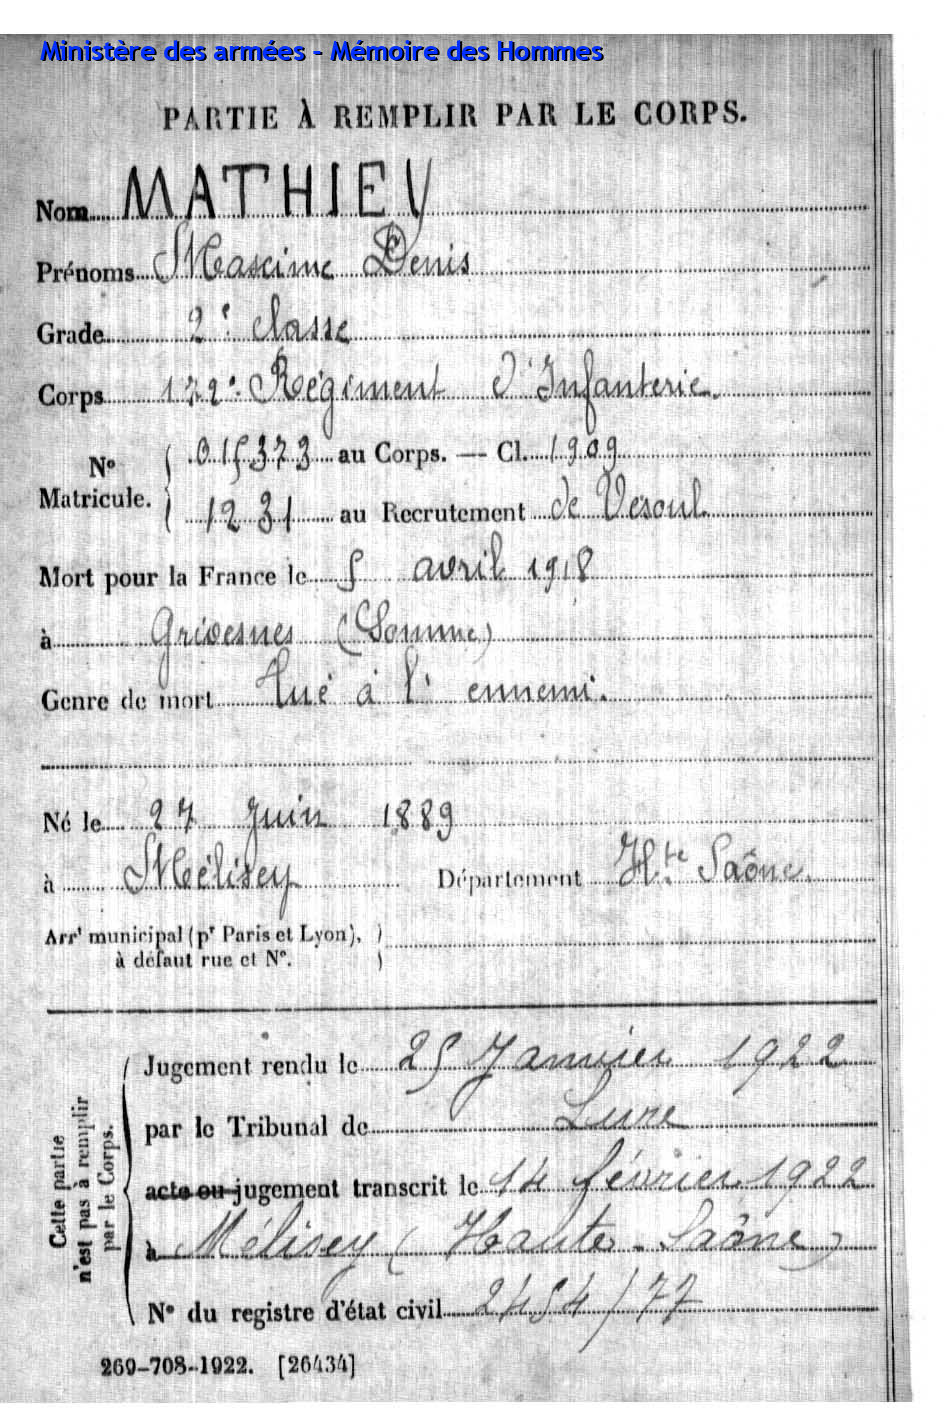 Ministère des armées - Mémoire des Hommes
PARTIE À REMPLIR PAR LE CORPS.
Nom MATHIEY
Prénoms Maxime Denis
Grade 2e classe
Corps 172e Régiment d'Infanterie.
N° Matricule. 015373 au Corps. — Cl. 1909
1231 au Recrutement de Vesoul
Mort pour la France le 5 avril 1918
à Grivesnes (Somme)
Genre de mort tué à l'ennemi.
Né le 27 Juin 1889
à Mélisey Département Hte Saône.
Arrt municipal (pr Paris et Lyon),
à défaut rue et N°.
Cette partie n'est pas à remplir par le Corps.
Jugement rendu le 25 Janvier 1922
par le Tribunal de Lure
acte ou jugement transcrit le 14 février 1922
à Mélisey (Haute-Saône)
N° du registre d'état civil 2454/77
269-708-1922. [26434]